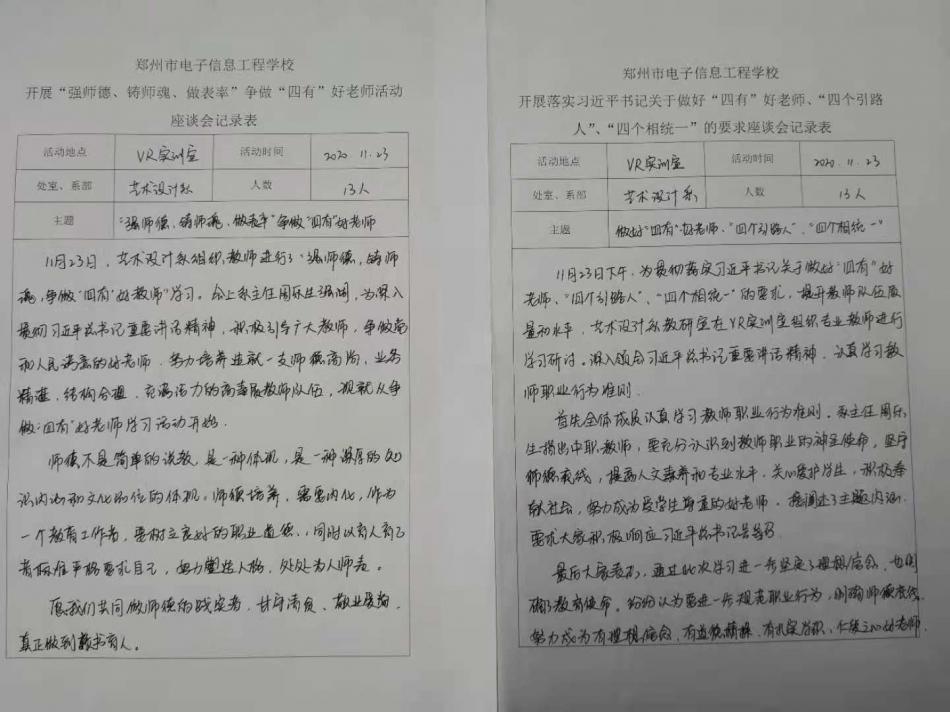 郑州市电子信息工程学校
开展“强师德、铸师魂、做表率”争做“四有”好老师活动
座谈会记录表
活动地点 VR实训室 活动时间 2020.11.23
处室、系部 艺术设计系 人数 13人
主题 “强师德、铸师魂、做表率”争做“四有”好老师
11月23日，艺术设计系组织教师进行了“强师德，铸师
魂，争做“四有”好教师”学习。会上系主任周乐生强调，为深入
贯彻习近平总书记重要讲话精神，积极引导广大教师，争做党
和人民满意的好老师，努力培养造就一支师德高尚，业务
精湛，结构合理，充满活力的高素质教师队伍，现就从争
做“四有”好老师学习活动开始．
师德不是简单的说教，是一种体现，是一种深厚的知
识内涵和文化品位的体现。师德培养，需要内化，作为
一个教育工作者，要树立良好的职业道德，同时以育人育己
者标准严格要求自己，努力塑造人格，处处为人师表。
愿我们共同做师德的践定者，甘守清贫、敬业爱岗，
真正做到教书育人。
郑州市电子信息工程学校
开展落实习近平书记关于做好“四有”好老师、“四个引路
人”、“四个相统一”的要求座谈会记录表
活动地点 VR实训室 活动时间 2020.11.23
处室、系部 艺术设计系 人数 13人
主题 做好“四有”好老师、“四个引路人”、“四个相统一”
11月23日下午，为贯彻落实习近平书记关于做好“四有”好
老师、“四个引路人”、“四个相统一”的要求，提升教师队伍质
量和水平，艺术设计系教研室在VR实训室组织专业教师进行
学习研讨。深入领会习近平总书记重要讲话精神，认真学习教
师职业行为准则．
首先全体成员认真学习教师职业行为准则．系主任周乐
生指出中职教师，要充分认识到教师职业的神圣使命，坚守
师德底线，提高人文素养和专业水平，关心爱护学生，积极奉
献社会，努力成为受学生尊重的好老师．接阐述了主题内涵．
要求大家积极响应习近平总书记号召．
最后大家表示，通过此次学习进一步坚定了理想信念，也明
确了教育使命。纷纷认为要进一步规范职业行为，明确师德底线，
努力成为有理想信念，有道德情操，有扎实学识，仁爱之心好老师．